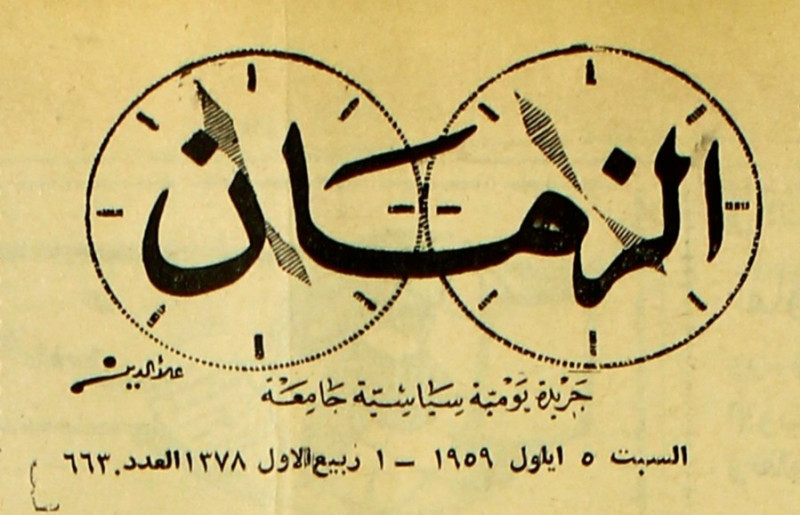 الزمان
علاء الدين
جَريْدة يَوْميَّة سِيَاسِيَّة جَامِعَة
السبت ٥ ايلول ١٩٥٩ – ١ ربيع الاول ١٣٧٨ العدد ٦٦٣٠